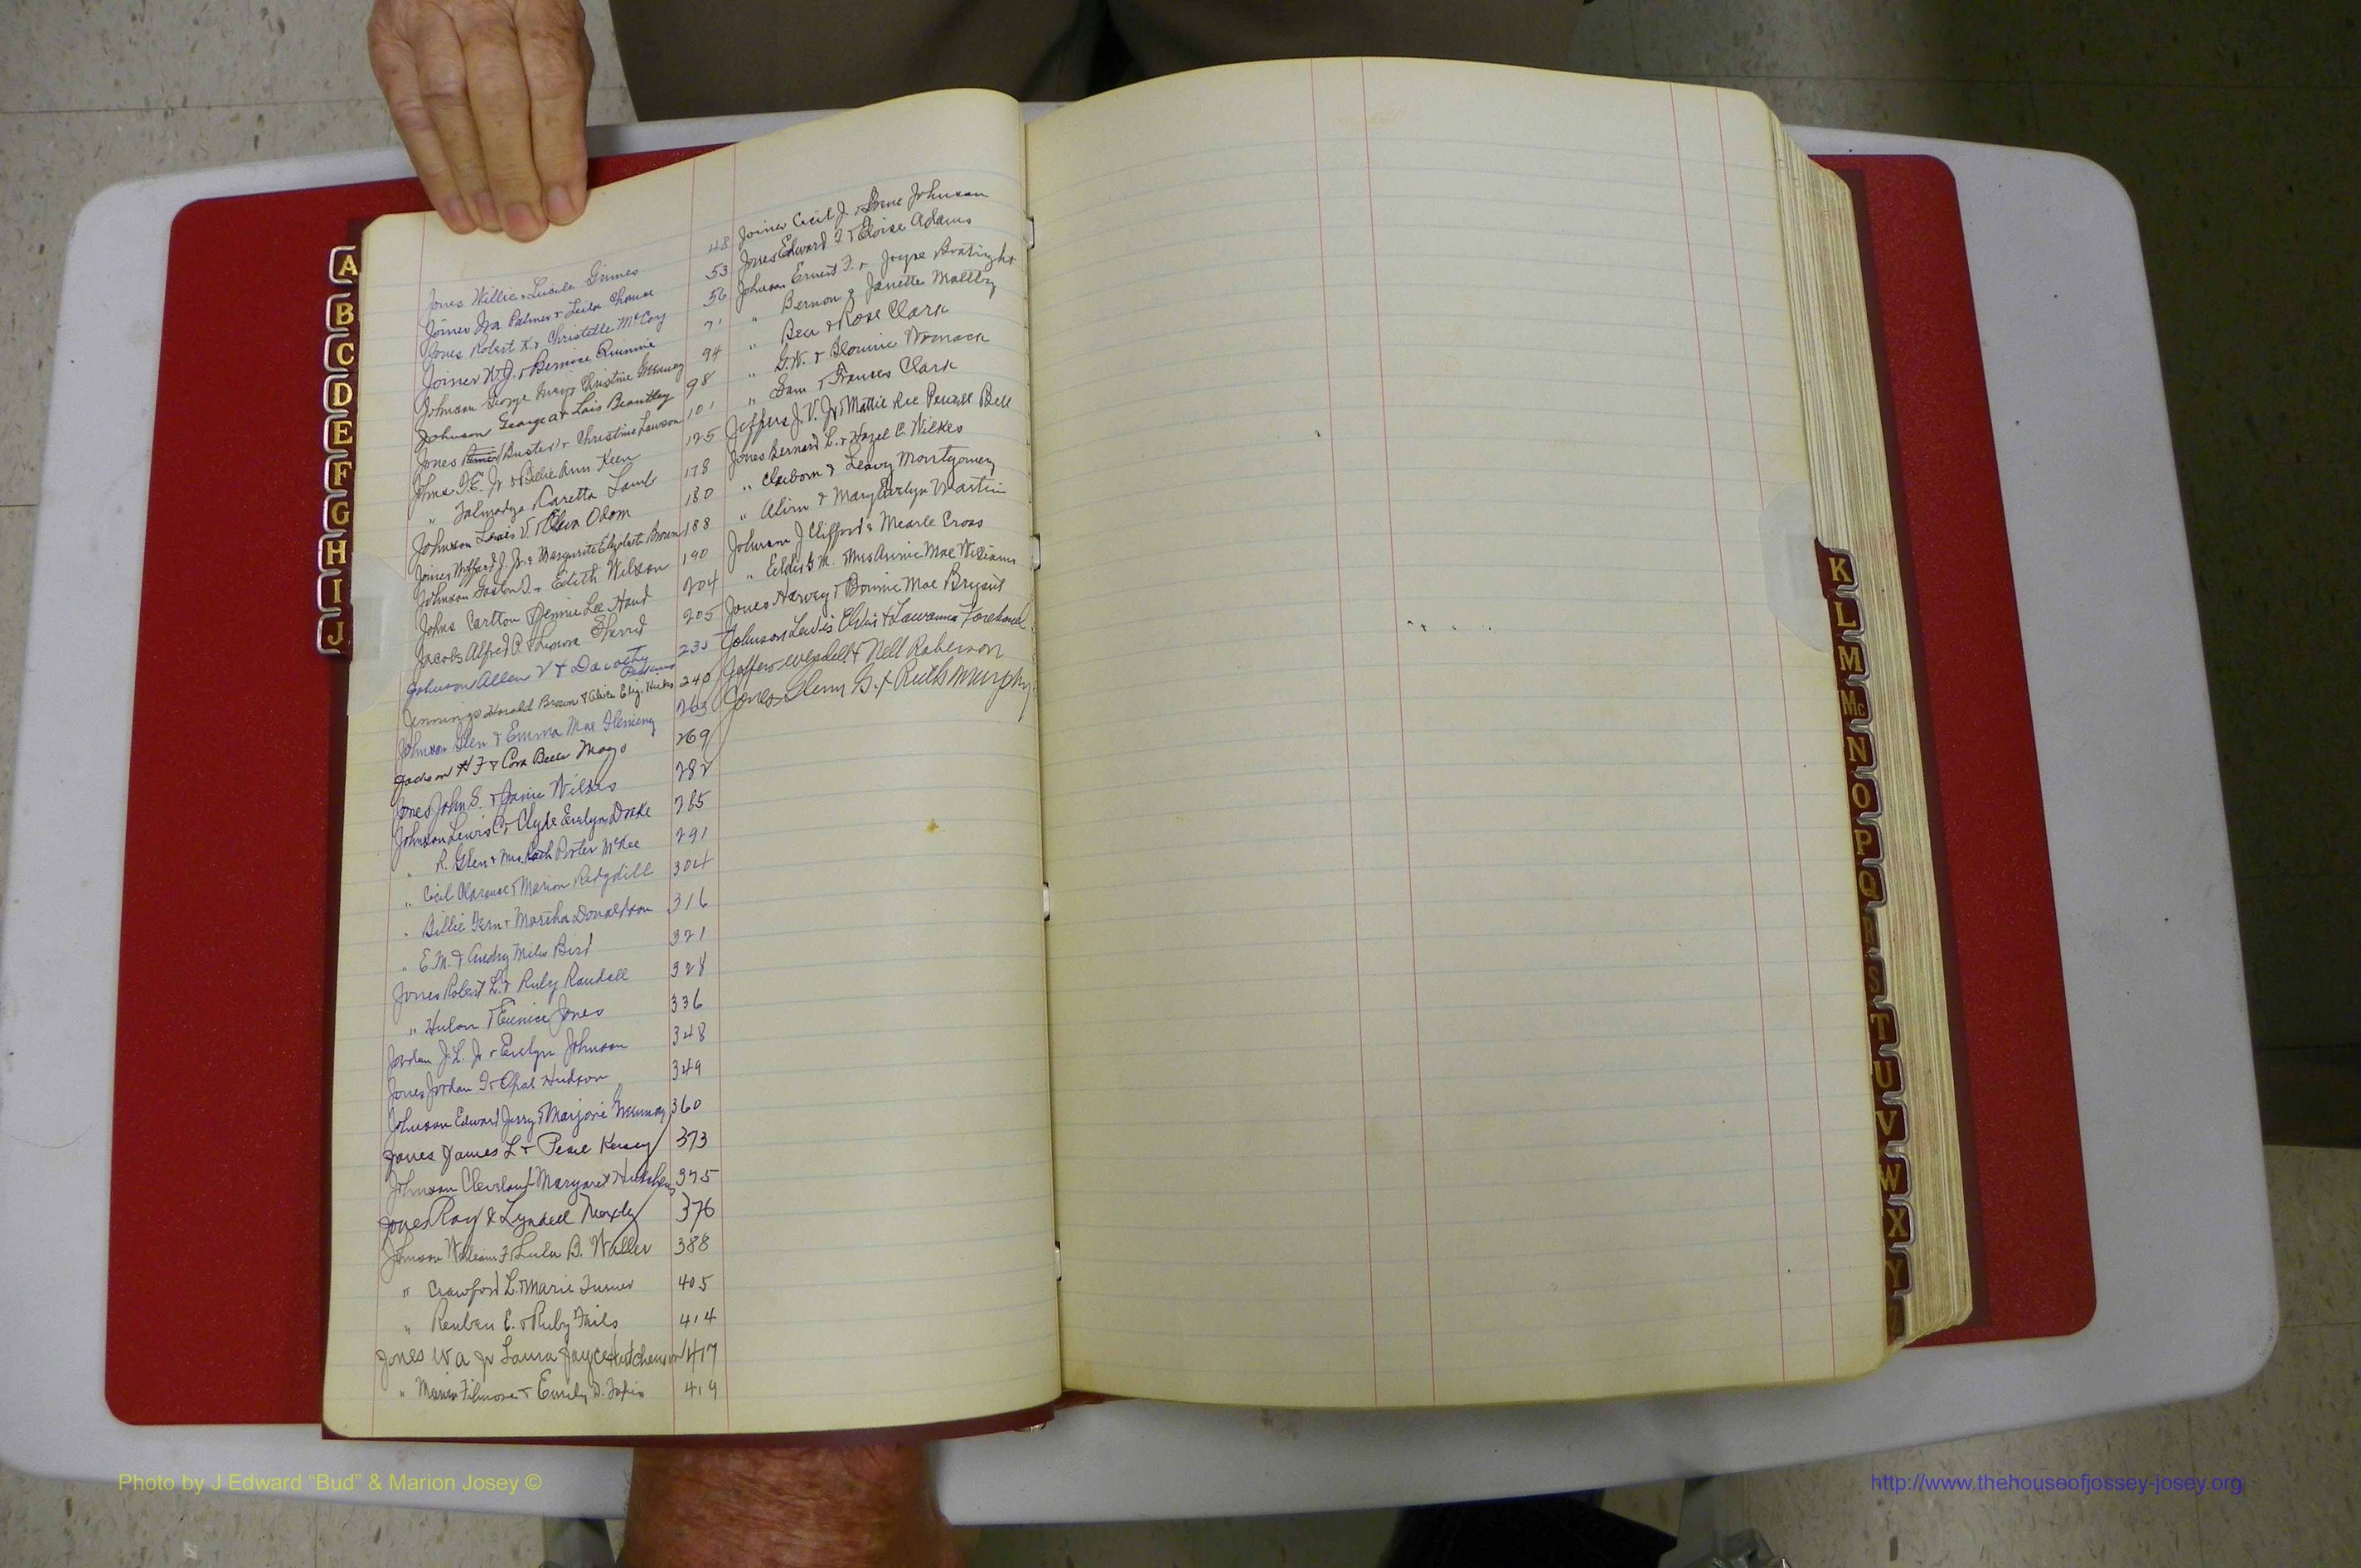 Jones Willie & Lucile Grimes 48
Joiner Ira Palmer & Leila 53
Jones Robert K. & Christelle McCoy 56
Joiner W.J. & Bernice 71
Johnson George Christine 94
Johnson George a & Lois Brantley 98
Jones (Buster) & Christine Lawson 101
Johns I.E. Jr & Billie Ann Keen 125
" Talmadge Caretta Lamb 178
Johnson Lewis V. & Elva Odom 180
Joiner J. Jr. & Marguerite Elizabeth Brown 188
Johnson Gaston D. & Edith Wilson 190
Johns Carlton Jennie Lee Hand 204
Jacobs Alfred P. & Sherrod 205
Johnson Allen V & Dorothy 235
Jennings Harold Brown & Alice Eliz. Hicks 240
Johnson Glen & Emma Mae Flemeny 263
Jackson H F & Cora Belle Mayo 269
Jones John S. & Janie Wilkes 282
Johnson Lewis C. & Clyde Evelyn Drake 285
" R. Glen & Mrs. Ruth Porter McKee 291
" Cecil Clarence & Marion Ridgdill 304
" Billie Fern & Martha Donaldson 316
" E.M. & Audry Miles Bird 321
Jones Robert L. & Ruby Randall 328
" Hulon & Eunice Jones 336
Jordan J.L. Jr & Evelyn Johnson 348
Jones Jordan I & Opal Hudson 349
Johnson Edward Jerry & Marjorie 360
Jones James L & Pearl Kersey 373
Johnson Cleveland Margaret 375
Jones Ray & Lyndell Moxley 376
Johnson William F. & Lula B. Waller 388
" Crawford L. & Marie Turner 405
" Reuben E. & Ruby Fails 414
Jones W a Jr Laura Jayce Hutcheson 417
" Marion Filmore & Emily D. 419
Joiner Cecil J. & Irene Johnson
Jones Edward & Eloise Adams
Johnson Ernest F. & Joyce Boatright
" Bernon & Janette Maltby
" Ben & Rose Clark
" G.W. & Womack
" Sam & Frances Clark
Jeffers J.V. Jr & Mattie Lee Powell Bell
Jones Bernard L. & Hazel C. Wilkes
" Claiborn & Montgomery
" Alvin & Mary Evelyn Martin
Johnson J Clifford & Mearle Cross
" M. Mrs Annie Mae Williams
Jones Harvey & Bonnie Mae Bryant
Johnson Lewis Elvis & Lawanna Forehand
Jeffers Wendell & Nell Roberson
Jones Glenn G. & Ruth Murphy
A
B
C
D
E
F
G
H
I
J
K
L
M
Mc
N
O
P
Q
R
S
T
U
V
W
X
Y
Z
Photo by J Edward “Bud” & Marion Josey ©
http://www.thehouseofjossey-josey.org